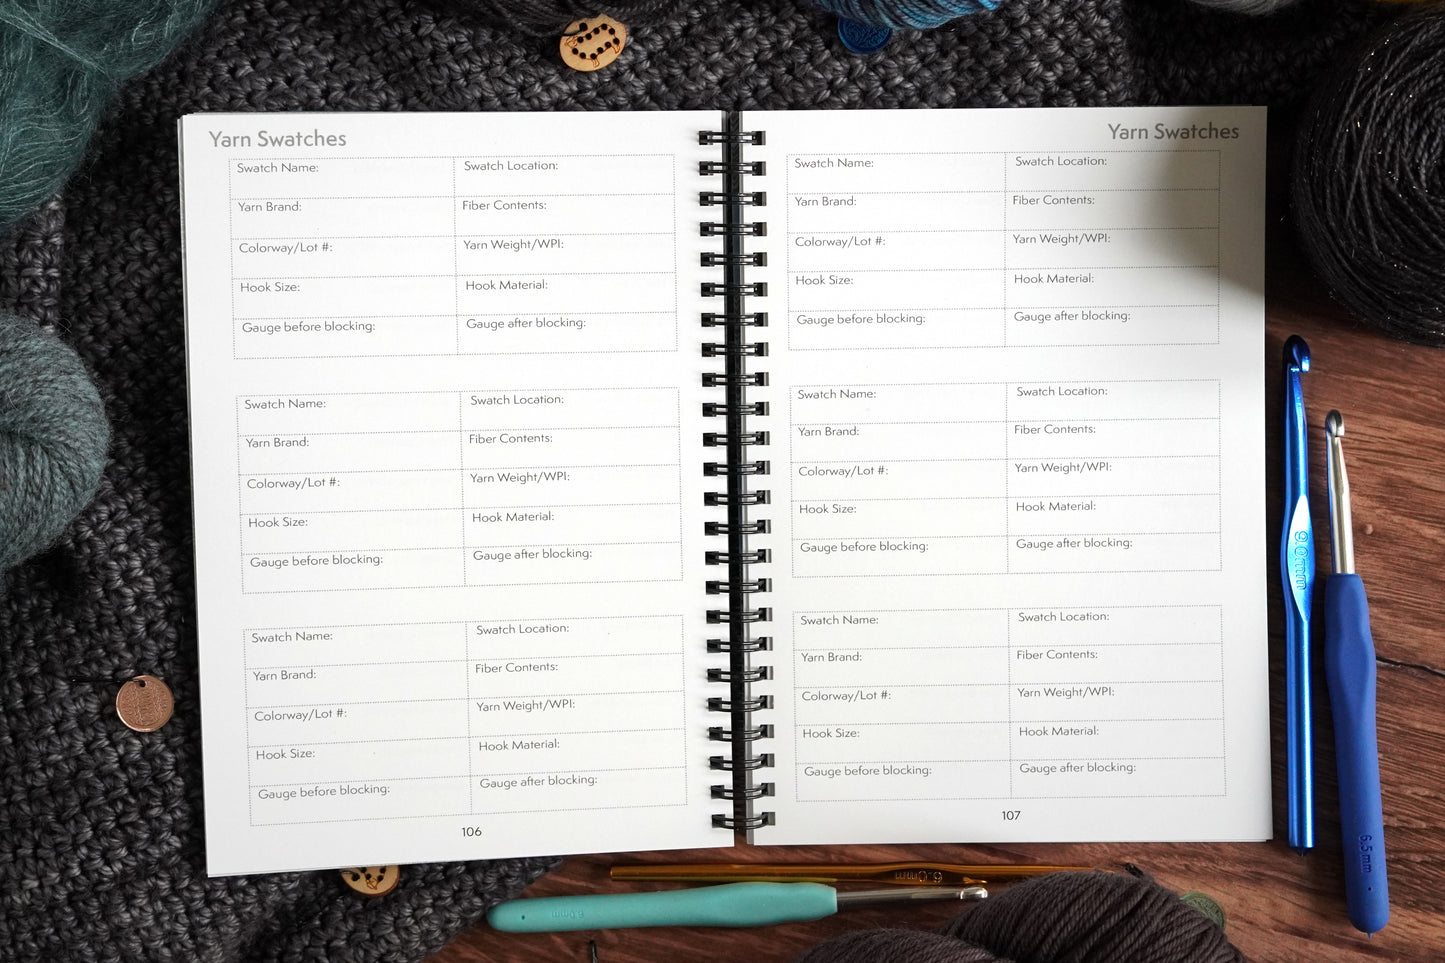 Yarn Swatches
Swatch Name: Swatch Location:
Yarn Brand: Fiber Contents:
Colorway/Lot #: Yarn Weight/WPI:
Hook Size: Hook Material:
Gauge before blocking: Gauge after blocking:
Swatch Name: Swatch Location:
Yarn Brand: Fiber Contents:
Colorway/Lot #: Yarn Weight/WPI:
Hook Size: Hook Material:
Gauge before blocking: Gauge after blocking:
Swatch Name: Swatch Location:
Yarn Brand: Fiber Contents:
Colorway/Lot #: Yarn Weight/WPI:
Hook Size: Hook Material:
Gauge before blocking: Gauge after blocking:
106
Yarn Swatches
Swatch Name: Swatch Location:
Yarn Brand: Fiber Contents:
Colorway/Lot #: Yarn Weight/WPI:
Hook Size: Hook Material:
Gauge before blocking: Gauge after blocking:
Swatch Name: Swatch Location:
Yarn Brand: Fiber Contents:
Colorway/Lot #: Yarn Weight/WPI:
Hook Size: Hook Material:
Gauge before blocking: Gauge after blocking:
Swatch Name: Swatch Location:
Yarn Brand: Fiber Contents:
Colorway/Lot #: Yarn Weight/WPI:
Hook Size: Hook Material:
Gauge before blocking: Gauge after blocking:
107
9.0mm
6.5mm
6.0mm